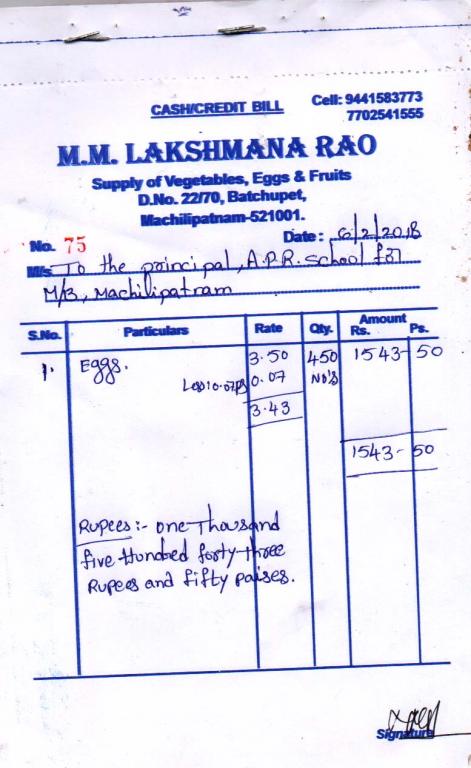 CASH/CREDIT BILL
Cell: 9441583773
7702541555
M.M. LAKSHMANA RAO
Supply of Vegetables, Eggs & Fruits
D.No. 22/70, Batchupet,
Machilipatnam-521001.
No. 75
Date: 6/2/2018
M/s To the principal, A.P.R. School for
M/B, Machilipatnam
S.No. Particulars Rate Qty. Amount
Rs. Ps.
1. Eggs. 3.50 450 1543- 50
0.07 No's
3.43
1543- 50
Rupees:- one Thousand
five Hundred forty three
Rupees and fifty paises.
Signature